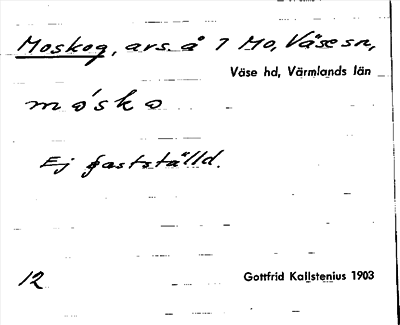 Moskog, avs. å 7 Mo, Väse sn,
Väse hd, Värmlands län
mo´sko
Ej fastställd.
12
Gottfrid Kallstenius 1903